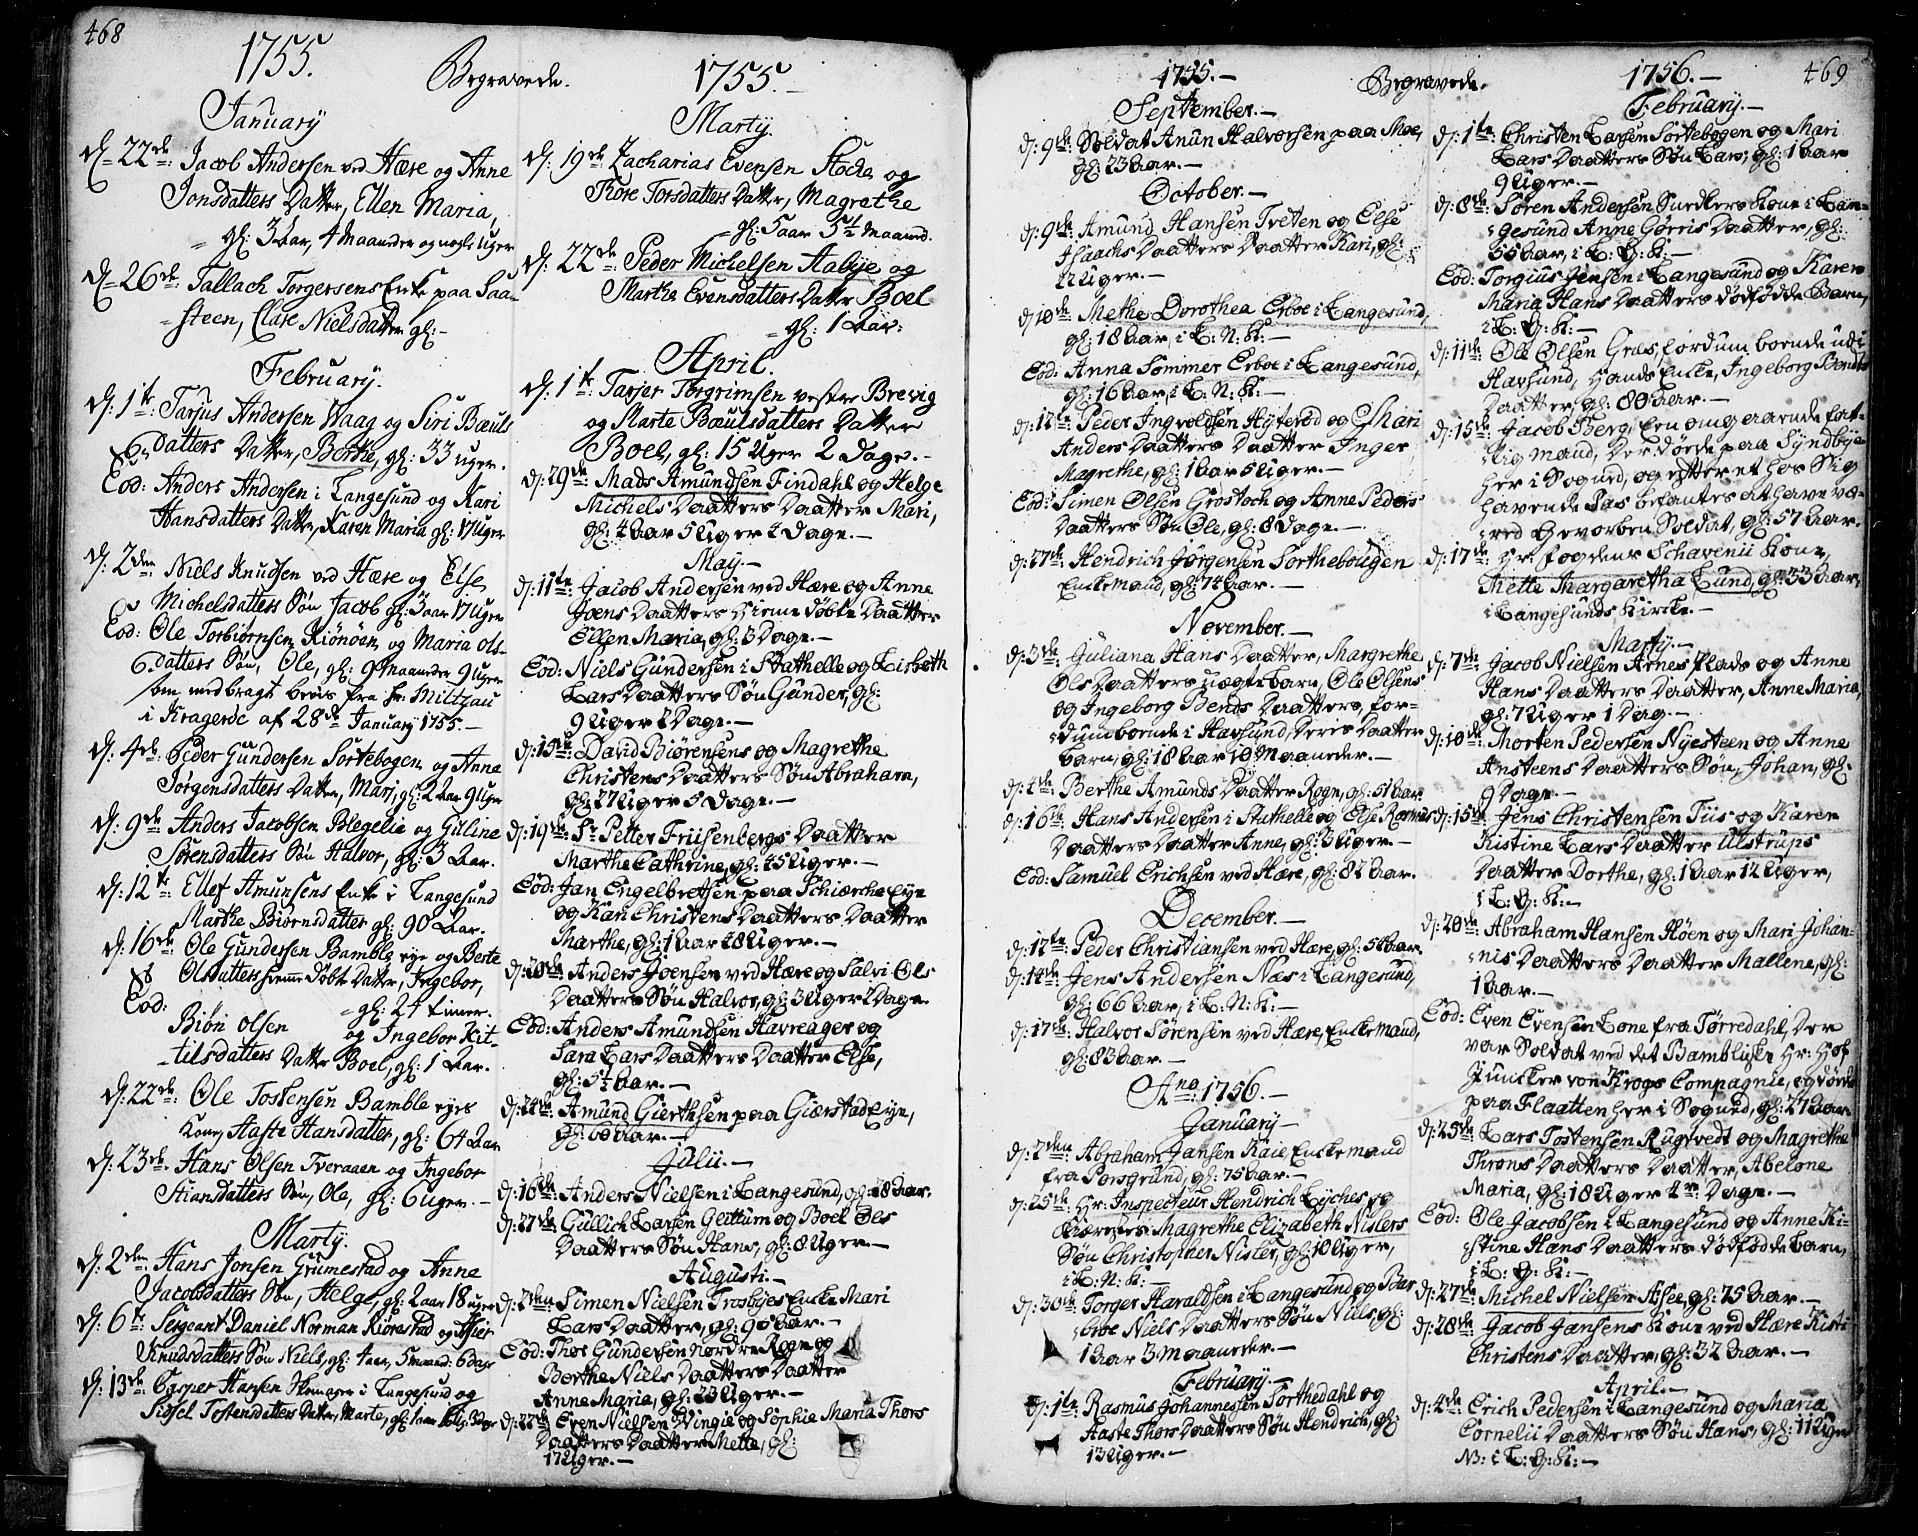 468
1755.
Begravede.
January
d= 22de: Jacob Andersen ved Herre og Anne
Jonsdatters Datter, Ellen Maria,
= gl: 3 Aar, 4 Maaneder og nogle uger
d= 26de: Tallach Torgersens Enke paa Saa-
=steen, Clare Nielsdatter gl:-
February.
d: 1te: Tarjus Andersen Haag og Siri Bæuls
datters Datter, Berthe, gl: 33 uger.
Eod: Anders Andersen i Langesund og Kari
Hansdatters Datter, Karen Maria gl: 17 Uger
d: 2den: Niels Knudsen ved Herre og Else
Michelsdatters Søn Jacob gl: 3 aar 17 Uger
Eod: Ole Torbiørnsen Kiönöen og Maria ols-
datters Søn, Ole, gl: 9 Maaneder 9 Uger
som medbragt bevis fra Hr: Miltzau
i Kragerøe af 28de January 1755.-
d: 4de: Peder Gundersen Sortebogen og Anne
Jörgensdatters Datter, Mari, gl: 2 aar 9 Uger
d: 9de: Anders Jacobsen Blegelie og Guline
Sörensdatters Søn Halvor, gl: 3 Aar.
d: 12te: Ellef Amunsens Enke i Langesund
Marthe Biörnsdatter gl: 90 Aar.
d: 16de: Ole Gundersen Bamble eye og Berte
Olsdatters hieme døbt Datter, Ingebor,
= gl: 24 timer.
Eod:
Biön olsen og Ingebor Kit-
=tilsdatters Datter Boel, gl: 1 Aar.
d: 22de: Ole Tostensen Bamble eyes
Kone, Aaste Hansdatter, gl: 64 Aar
d: 23de: Hans Olsen Tveraaen og Ingebor
Stiansdatters Søn, Ole, gl: 6 Uger.-
Marty.
d: 2den: Hans Jonsen Grumestad og Anne
Jacobsdatters Søn, Helge, gl: 2 aar 18 uger
d: 6te: Sergeant Daniel Norman Kiørestad og
Knudsdatters Søn Niels, gl: 4 aar, 5 maand: 6 dage
d: 13de: Casper Hansen i Langesund og
Sidsel Tostensdatters Datter, Marte, gl: 1 aar
1755.-
Marty.
d: 19de Zacharias Evensen Stoche og
Thore Torsdatters Datter, Magrethe
= gl: 5 aar 5½ Maaned.
d: 22de: Peder Michelsen Aabye og
Marthe Evensdatters Datter Boel
= gl: 1 Aar:
April.
d: 1te: Tarjer Torgrimsen vester Brevig
og Marte Bæulsdatters Datter
Boel, gl: 15 Uger 2 Dage.-
d: 29de: Mads Amundsen Findahl og Helge
Michels Daatters Daatter Mari,
gl: 4 aar 5 Uger 4 Dage.-
May.-
d: 11te: Jacob Andersen ved Herre og Anne
Joens Daatters Hieme døbte Daatter
Ellen Maria, gl: 3 Dage.-
Eod: Niels Gundersen i Stathelle og Lisbeth
Lars Daatters Søn Gunder, gl:
9 Uger 2 Dage.-
d: 15de: David Biørensens og Magrethe
Christens Daatters Søn Abraham,
gl: 27 Uger 5 Dage.-
d: 19de: Sr Petter Friisenbergs Daatter
Marthe Cathrine, gl: 45 Uger.-
Eod: Jan Engelbretsen paa Schiærche eye
og Kari Christens Daatters Daatter
Marthe, gl: 1 Aar 48 Uger.-
d: 20de: Anders Joensen ved Herre og Salvi Ols
Daatters Søn Halvor, gl: 3 Uger 2 Dage.
Eod: Anders Amundsen Havreager og
Sara Lars Daatters Daatter Else,
gl: 5½ Aar.-
d: 24de: Amund Gierthsen paa Giærstad Eyn,
gl: 60 Aar.-
Julii.-
d: 16de: Anders Nielsen i Langesund, gl: 28 Aar.
d: 27de: Gullich Larsen Glittum og Boel Ols
Daatters Søn Hans, gl: 8 Uger.-
Augusti.-
d: 2den: Simen Nielsen Trosbyes Encke Mari
Lars Daatter, gl: 90 Aar.-
Eod: Thor Gundersen nordre Rogn og
Berthe Niels Daatters Daatter
Anne Maria, gl: 23 Uger.-
d: 27de: Even Nielsen Vingie og Sophie Maria Thors
Daatters Daatter Mette, gl:
17 Uger.-
1755.-
Begravede.
September.-
d: 9de: Soldat Anun Halvorsen paa Moe,
gl: 23 Aar.-
October.-
d: 9de: Amund Hansen Tveten og Else
Isaachs Daatters Daatter Kari, gl:
12 Uger.-
d: 10de: Methe Dorothea Erboe i Langesund,
gl: 18 Aar, i L: N: K:-
Eod: Anna Sommer Erboe i Langesund,
gl: 16 Aar, i L: N: K:-
d: 12te: Peder Ingvoldsen Hyterød og Mari
Anders Daatters Daatter Inger
Magrethe, gl: 1 Aar 5 Uger.-
Eod: Simen Olsen Grostoch og Anne Peders
Daatters Søn Ole, gl: 8 Dage.-
d: 27de: Hendrich Jørgensen Sorthebougen
Enckemand, gl: 74 Aar.-
November.-
d: 3de: Juliana Hans Daatter, Margrethe
Ols Daatters uægte barn, Ole Olsens
og Ingeborg Bends Daatters, for-
=dum boende i Havsund, Deris Daatter
barn, gl: 18 Aar 10 Maaneder.-
d: 4de: Berthe Amunds Daatter Rogn, gl: 51 Aar
d: 16de: Hans Andersen i Stathelle og Else Rasmus
Daatters Daatter Anne, gl: 3 Uger.-
Eod: Samuel Erichsen ved Herre, gl: 82 Aar.
December.-
d: 12te: Peder Christiansen ved Herre, gl: 56 Aar.
d: 14de: Jens Andersen Næs i Langesund,
gl: 66 Aar, i L: N: K:-
d: 17de: Halvor Sörensen ved Herre, Enckemand,
gl: 83 Aar.-
Ano: 1756.-
January-
d: 2den: Abraham Jansen Raie, Enckemand
fra Porsgrund, gl: 75 Aar.-
d: 25de: Hr: Inspecteur Hendrich Lyches og
Kiærestes Magrethe Elizabeth Nislers
Søn Christopher Nisler, gl: 10 Uger,
i L: N: K:-
d: 30de: Torger Haraldsen i Langesund og Bar
=broe Niels Daatters Søn Niels, gl:
1 Aar 3 Maaneder.-
February.-
d: 1te: Rasmus Johannesen Sorthedahl og
Aaste Thors Daatters Søn Hendrich, gl:
13 Uger.-
1756.-
469
February.-
d: 1te: Christen Larsen Sortebogen og Mari
Lars Daatters Søn Lars, gl: 1 Aar
9 Uger.-
d: 8de: Søren Andersen Snedkers Kone i Lan-
=gesund Anne Gørris Daatter, gl:
58 Aar, i L: G: K:-
Eod: Torgius Jensen i Langesund og Karen
Maria Hans Daatters dødfødde Barn,
i L: G: K:-
d: 11te: Ole Olsen Græs, fordum boende udi
Havsund, Hands Encke, Ingeborg Bends
Daatter, gl: 80 Aar.-
d: 15de: Jacob Berg, En omgaaende fat-
=tig Mand, Der döede paa Syndbye
her i Sognet, og efter et hos Sig
havende Pas befantes at have væ-
=red Gevorben Soldat, gl: 57 Aar.
d: 17de: Hr: Fogdens Schavenii Kone,
Mette Margaretha Lund, gl: 33 Aar,
i Langesunds Kirke.-
Marty.-
d: 7de: Jacob Nielsen Arnes Plads og Anne
Hans Daatters Daatter, Anne Maria,
gl: 7 Uger 1 Dag.-
d: 10de: Morten Pedersen Nyesteen og Anne
Ansteens Daatters Søn, Johan, gl:
9 Dage.-
d: 15de: Jens Christensen Fiis og Karen
Kistine Lars Daatter Ulstrups
Daatter Dorthe, gl: 1 Aar 12 Uger,
i L: G: K:-
d: 20de: Abraham Hansen Høen og Mari Johan-
=nis Daatters Daatter Mallene, gl:
1 Aar.-
Eod: Even Evensen Lone fra Tørredahl, Der
var Soldat ved det Bambliske Hr: Hof
Juncker von Krogs Compagnie, og døde
paa Flaatten her i Sognet, gl: 27 Aar
d: 25de: Lars Tostensen Rugtvedt og Magrethe
Throns Daatters Daatter, Abelone
Maria, gl: 18 Uger 4re Dage.-
Eod: Ole Jacobsen i Langesund og Anne Ki-
=stine Hans Daatters dødfødde barn,
i L: G: K:-
d: 27de: Michel Nielsen Aasee, gl: 75 Aar.-
d: 28de: Jacob Jansens Kone ved Herre Kisti
Christens Daatter, gl: 32 Aar.-
April.-
d: 4de: Erich Pedersen i Langesund og Maria
Cornelii Daatters Søn Hans, gl: 11 Uger
N: i L: G: K:-